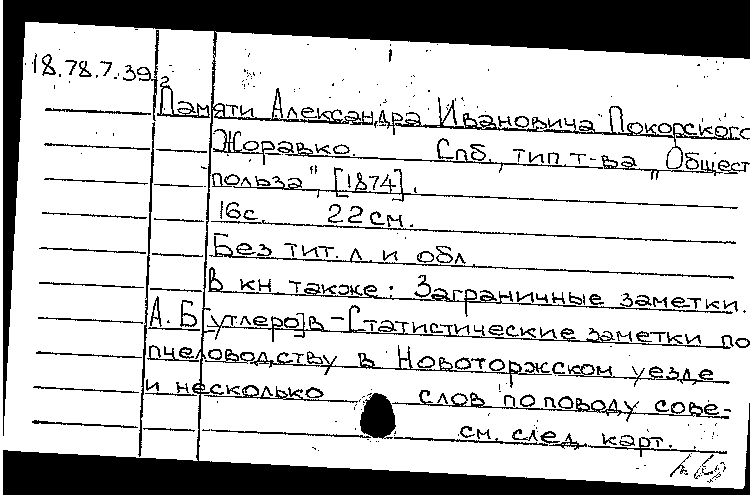 18.78.7.39²
Памяти Александра Ивановича Покорского
Жоравко. Спб., тип. т-ва „Общест
польза", [1874].
16с. 22 см.
Без тит. л. и обл.
В кн также: Заграничные заметки.
А. Б[утлеро]в - Статистические заметки по
пчеловодству в Новоторжском уезде
и несколько слов по поводу сове-
см. след. карт.